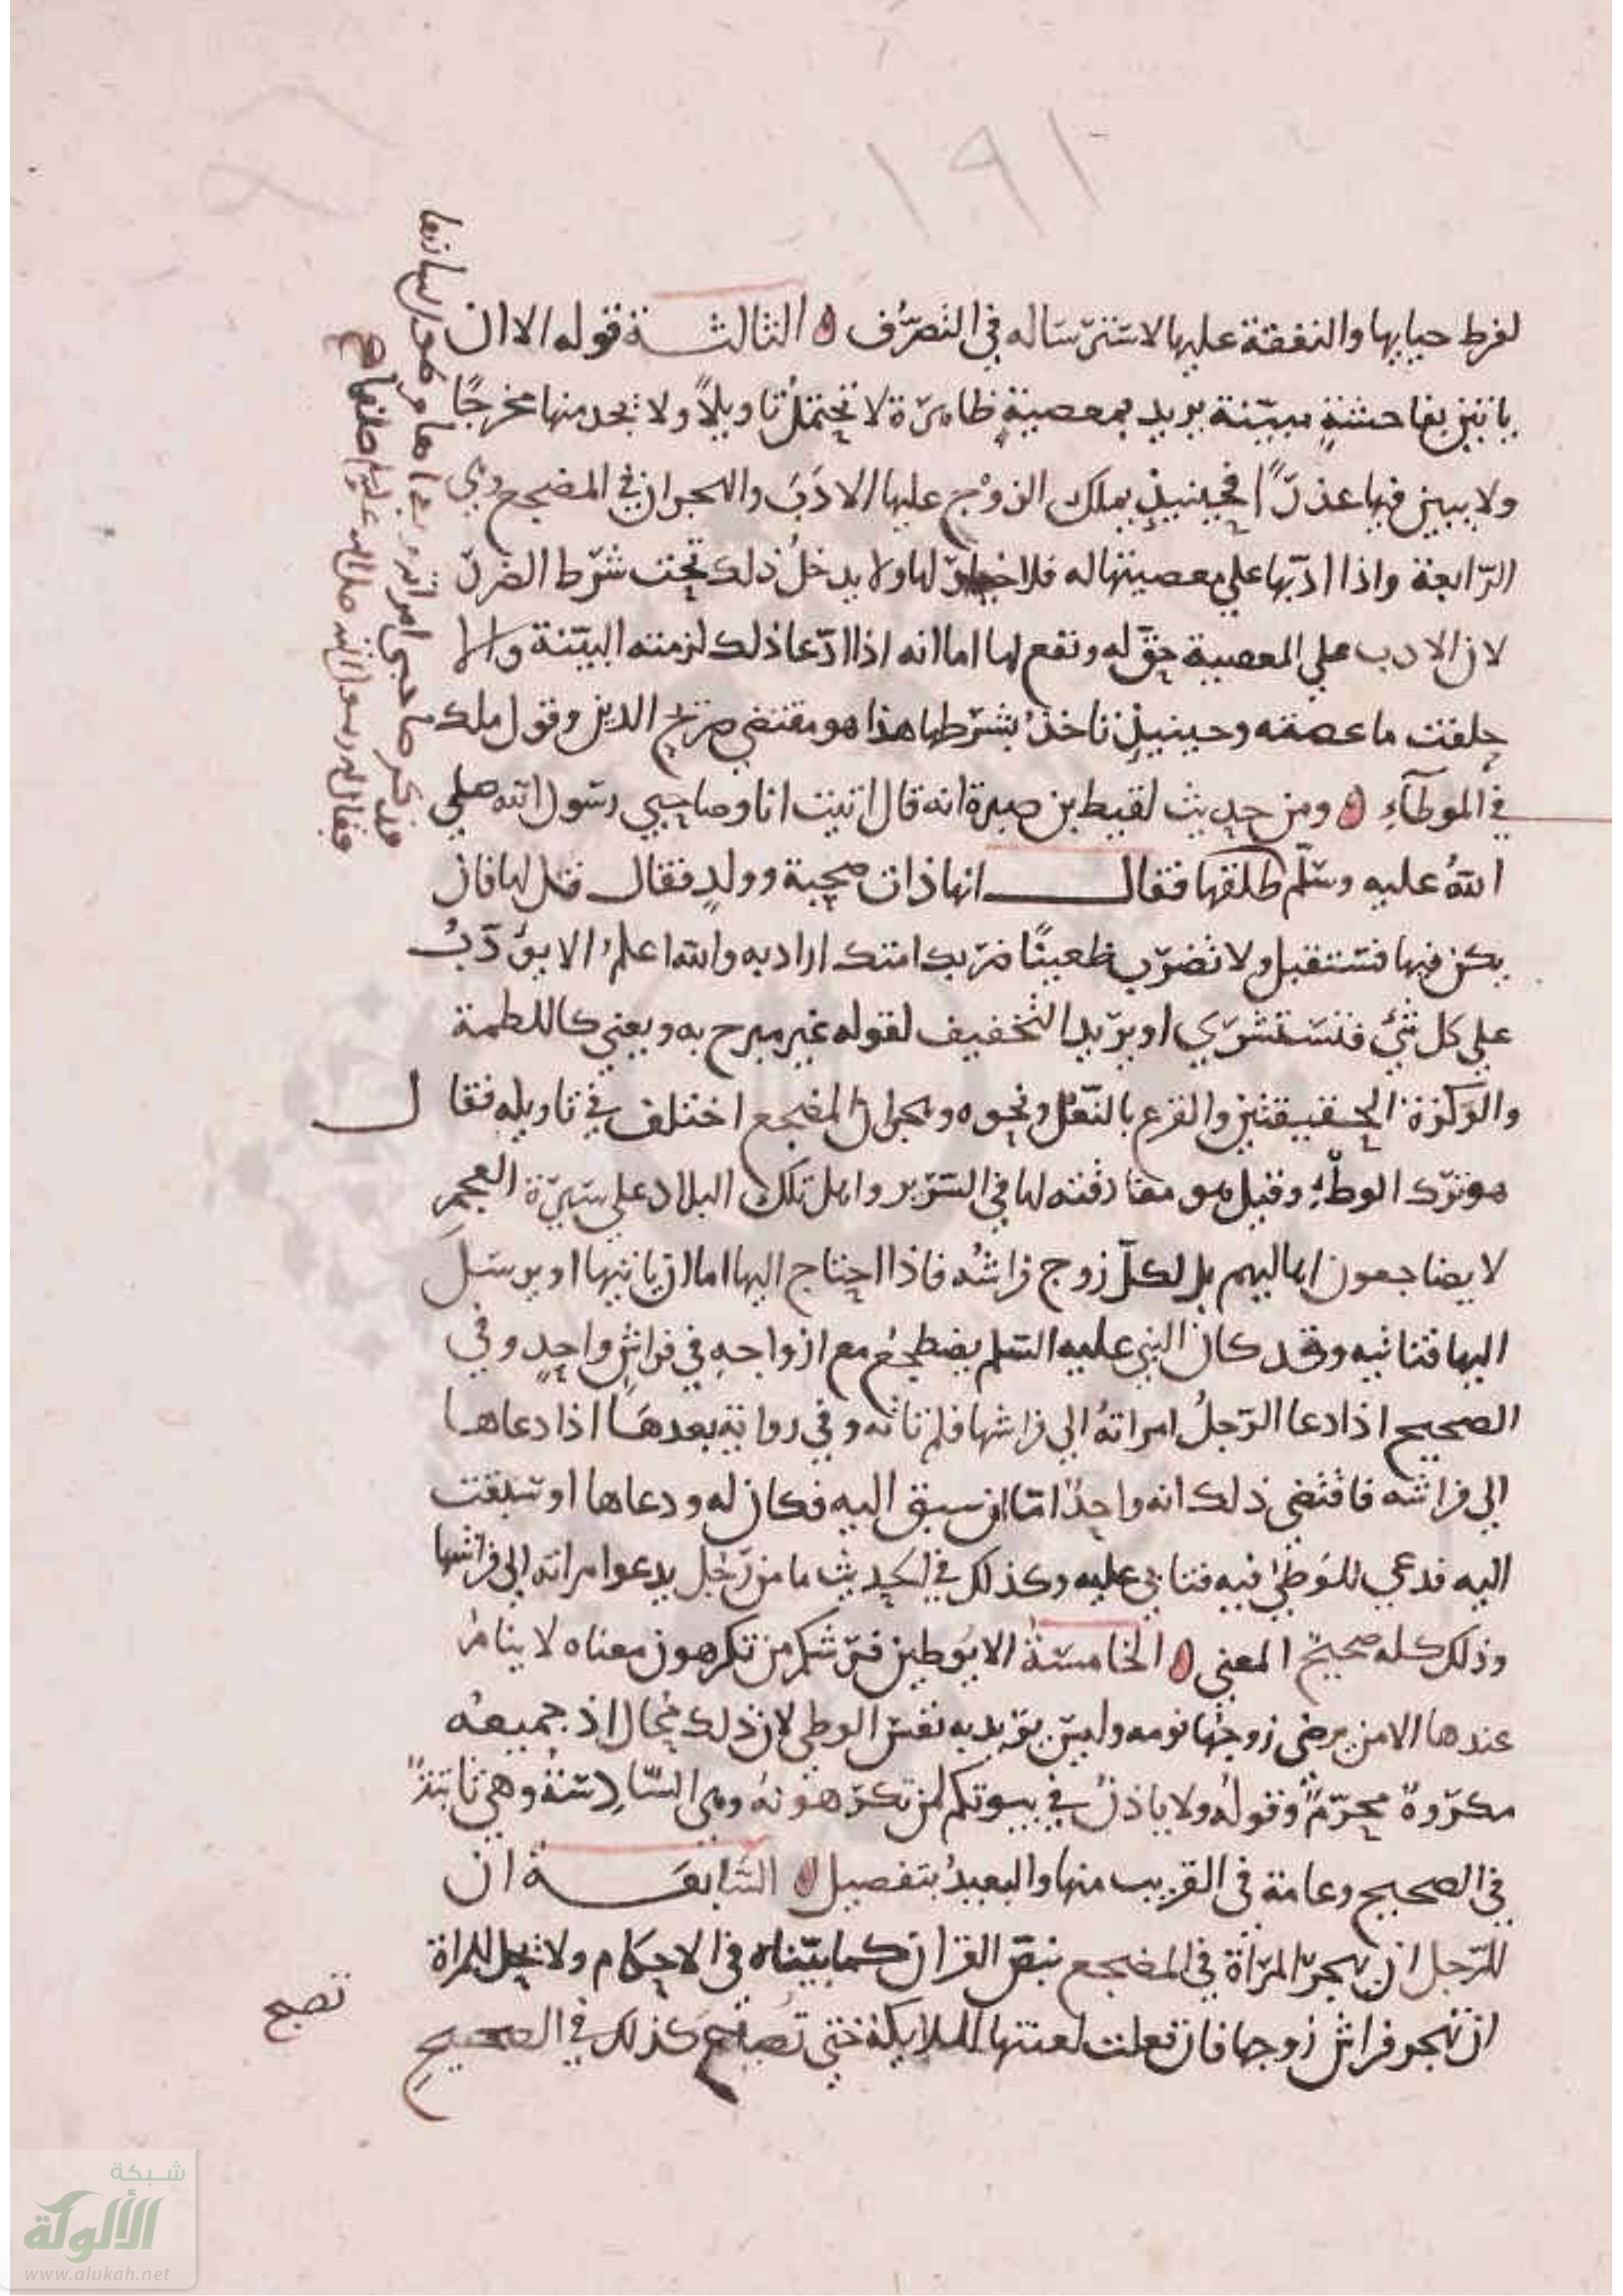 ١٩١
لفرط حيايها والنفقة عليها لاسترساله في التصرف الثالثة قوله الا ان
ياتين بفاحشة مبينة يريد بمعصية ظاهرة لا تحتمل تاويلاً ولا تجد منها مخرجًا
ولا يبين فيها عذرًا فحينيذ يملك الزوج عليها الادب والهجران في المضجع وهي
الرابعة واذا ادبها علي معصيتها له فلا خيار لها ولا يدخل ذلك تحت شرط الضرر
لان الادب علي المعصية حق له ونفع لها اما انه اذا ادعا ذلك لزمته البينة والا
حلفت ما عصته وحينيذ تاخذ بشرطها هذا هو مقتضي صريح الدين وقول ملك
في الموطاء ومن حديث لقيط بن صبرة انه قال اتيت انا وصاحبي رسول الله صلي
الله عليه وسلم طلقها فقال انها ذات صحبة وولد فقال قل لها فان
يكن فيها فستقبل ولا تضرب ظعينتك ضربك امتك اراد به والله اعلم الا يؤدب
علي كل شيء فتستشري او يريد التخفيف لقوله غير مبرح به ويعني كاللطمة
والوكزة الخفيفتين والقرع بالنعل ونحوه وهجران المضجع اختلف في تاويله فقال
هو ترك الوطء وقيل هو مفارقته لها في السرير واهل تلك البلاد علي سيرة العجم
لا يضاجعون اهاليهم بل لكل زوج فراشه فاذا احتاج اليها اما ان ياتيها او يرسل
اليها فتاتيه وقد كان النبي عليه السلم يضطجع مع ازواجه في فراش واحد وفي
الصحيح اذا دعا الرجل امراته الي فراشها فلم تاته وفي رواية بعدها اذا دعاها
الي فراشه فاقتضي ذلك انه واحد اما ان سبق اليه فكان له ودعاها او سبقت
اليه فدعي للوطئ فيه فتابي عليه وكذلك في الحديث ما من رجل يدعوا مراته الي فراشها
وذلك كله صحيح المعني الخامسة الا يوطين فرشكم من تكرهون معناه لا ينام
عندها الا من يرضى زوجها نومه وليس يريد به نفس الوطي لان ذلك محال اذ جميعه
مكروه محرم وقوله ولا ياذن في بيوتكم لمن تكرهونه وهي السادسة وهي ثابتة
في الصحيح وعامة في القريب منها والبعيد بتفصيل السابعة ان
للرجل ان يهجر المراة في المضجع بنص القران كما بيناه في الاحكام ولا يحل للمراة
ان تهجر فراش زوجها فان فعلت لعنتها الملايكة حتي تصبح كذلك في الصحيح
تصبح
فذكر صاحبي امراته وبذاها وطول لسانها
فقال له رسول الله صلي الله عليه وسلم طلقها صح
شبكة
الألوكة
www.alukah.net